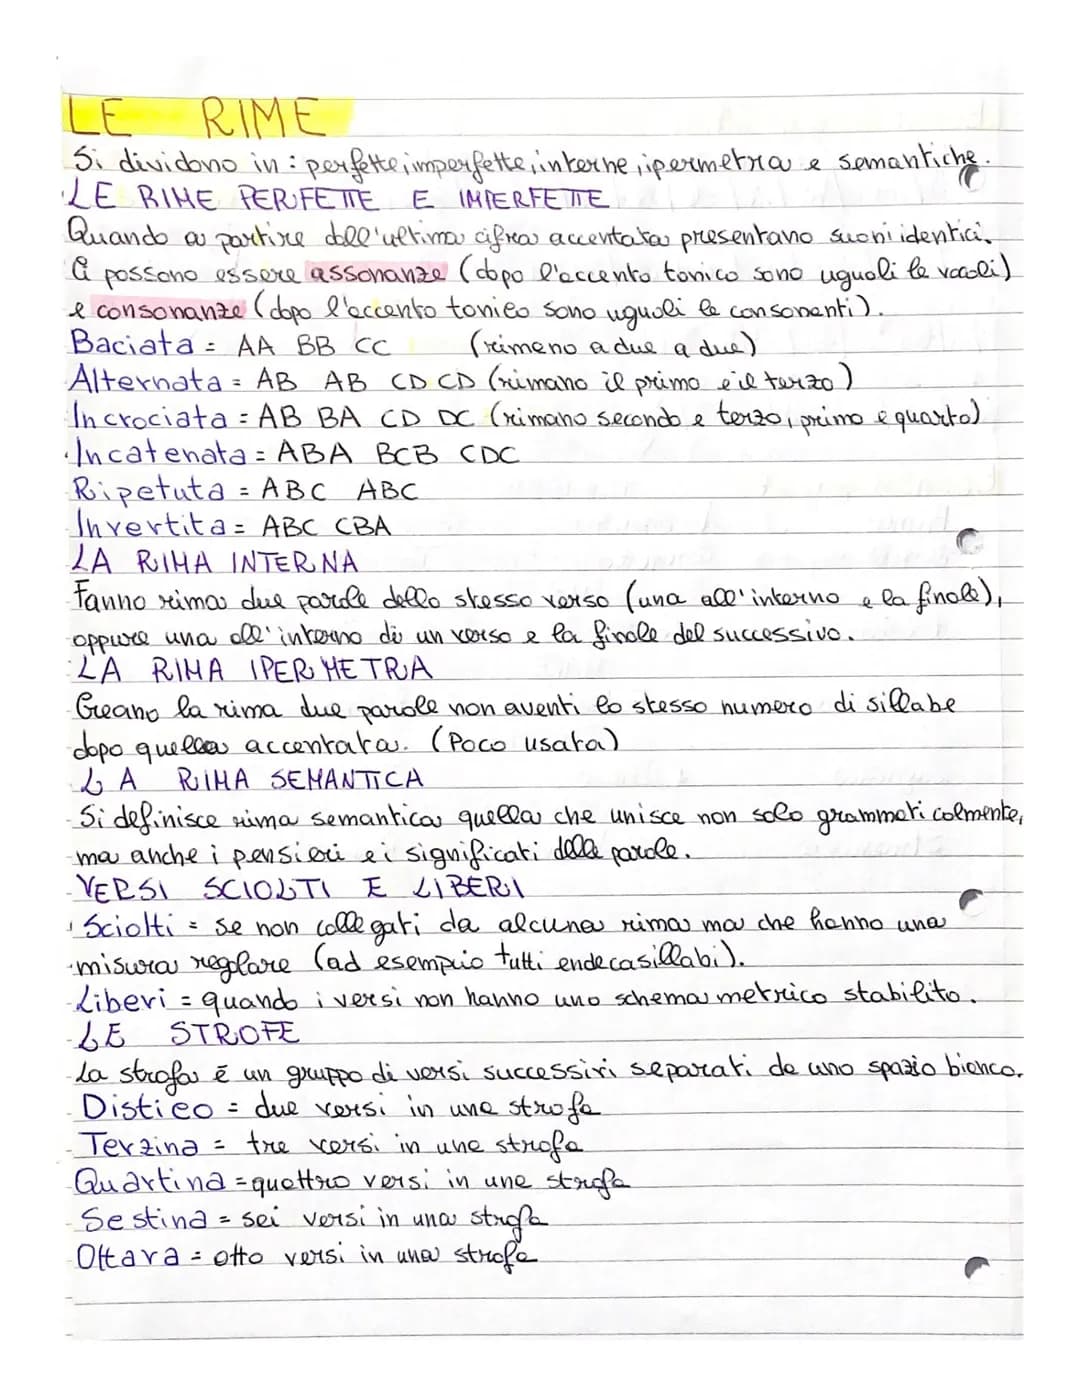 LE RIME
Si dividono in: perfette, imperfette, interne, ipermetra e semantiche.
LE RIME PERFETTE E IMPERFETTE
Quando a partire dall'ultima cifra accentata presentano suoni identici.
Ci possono essere assonanze (dopo l'accento tonico sono uguali le vocali)
e consonanze (dopo l'accento tonico sono uguali le consonanti).
Baciata = AA BB CC (rimano a due a due)
Alternata = AB AB CD CD (rimano il primo e il terzo)
Incrociata = AB BA CD DC (rimano secondo e terzo, primo e quarto)
Incatenata = ABA BCB CDC
Ripetuta = ABC ABC
Invertita = ABC CBA
LA RIMA INTERNA
Fanno rima due parole dello stesso verso (una all'interno e la finale),
oppure una all'interno di un verso e la finale del successivo.
LA RIMA IPERMETRA
Creano la rima due parole non aventi lo stesso numero di sillabe
dopo quella accentata. (Poco usata)
LA RIMA SEMANTICA
Si definisce rima semantica quella che unisce non solo grammaticalmente,
ma anche i pensieri e i significati delle parole.
VERSI SCIOLTI E LIBERI
Sciolti = se non collegati da alcuna rima ma che hanno una
misura regolare (ad esempio tutti endecasillabi).
Liberi = quando i versi non hanno uno schema metrico stabilito.
LE STROFE
La strofa è un gruppo di versi successivi separati da uno spazio bianco.
Distico = due versi in una strofa
Terzina = tre versi in una strofa
Quartina = quattro versi in una strofa
Sestina = sei versi in una strofa
Ottava = otto versi in una strofa